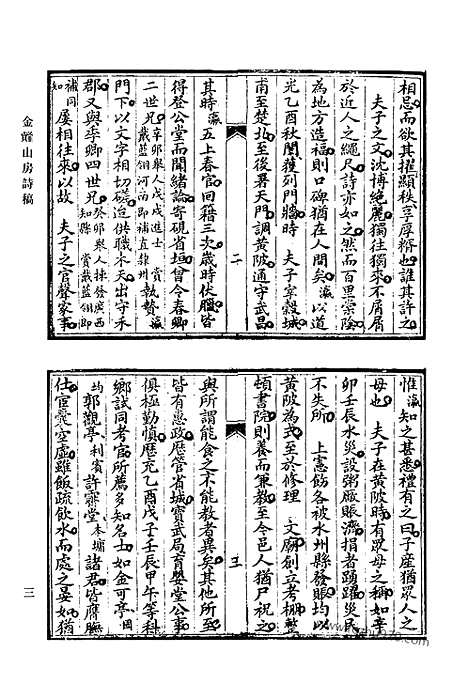 金嶐山房詩稿
相忌而欲其擢顯秩享厚糈也誰其許之
夫子之文沈博絶麗獨往獨來不屑屑
於近人之繩尺詩亦如之然而百里棠陰
為地方造福則口碑猶在人間矣瀛以道
光乙酉秋闈獲列門牆時　夫子宰穀城
甫至楚北至後署天門調黃陂通守武昌
二
其時瀛五上春官回籍三次歲時伏臘皆
得登公堂而聞緒論寄硯省垣曾令春卿
二世兄辛卯舉人戊戌進士賞戴藍翎河南即補直隸州執贄瀛
門下以文字相切磋迨供職木天出守承
郡又與季卿四世兄癸卯舉人揀發廣西知縣賞戴藍翎即補同知
屢相往來以故　夫子之官聲家事
惟瀛知之甚悉禮有之曰子產猶眾人之
母也　夫子在黃陂時有眾母之稱如辛
卯壬辰水災設粥廠賑濟捐者踴躍災民
不失所　上憲飭各被水州縣發賑均以
黃陂為式至於修理　文廟創立考棚整
頓書院則養而兼教至今邑人猶尸祝之
三
與所謂能食之不能教者異矣其他所至
皆有惠政歷管省城寶武局育嬰堂公事
俱極勤慎歷充乙酉戊子壬辰甲午等科
鄉試同考官所薦多知名士如金可亭國均
郭觀亭利賓許霽堂本墉諸君皆膺膴
仕宦囊空虛雖飯疏飲水而處之晏如猶
三